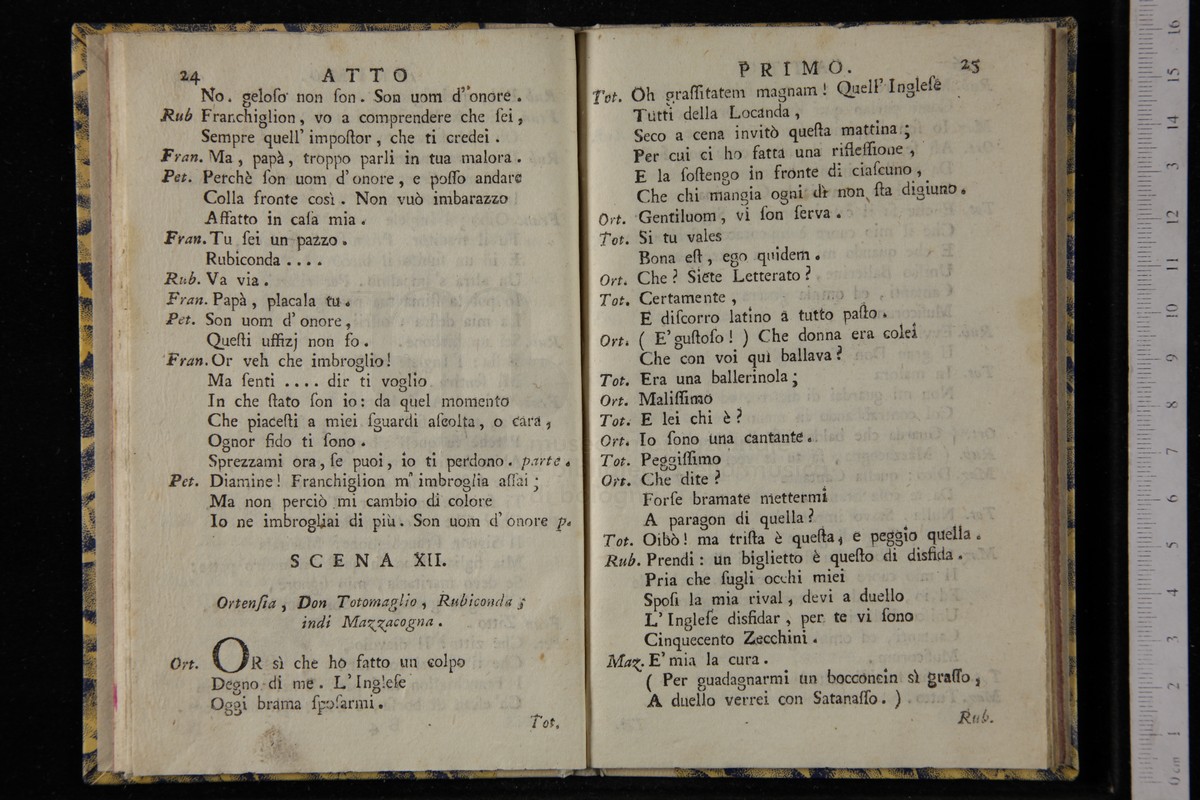 24 ATTO
No. geloso non son. Son uom d'onore.
Rub Franchiglion, vo a comprendere che sei,
Sempre quell' impostor, che ti credei.
Fran. Ma, papà, troppo parli in tua malora.
Pet. Perchè son uom d'onore, e posso andare
Colla fronte così. Non vuò imbarazzo
Affatto in casa mia.
Fran. Tu sei un pazzo.
Rubiconda ....
Rub. Va via.
Fran. Papà, placala tu.
Pet. Son uom d'onore,
Questi uffizj non fo.
Fran. Or veh che imbroglio!
Ma senti .... dir ti voglio
In che stato son io: da quel momento
Che piacesti a miei sguardi ascolta, o cara,
Ognor fido ti sono.
Sprezzami ora, se puoi, io ti perdono. parte.
Pet. Diamine! Franchiglion m' imbroglia assai;
Ma non perciò mi cambio di colore
Io ne imbrogliai di più. Son uom d'onore p.
SCENA XII.
Ortensia, Don Totomaglio, Rubiconda;
indi Mazzacogna.
Ort. OR sì che ho fatto un colpo
Degno di me. L'Inglese
Oggi brama sposarmi.
Tot.
PRIMO. 25
Tot. Oh grassitatem magnam! Quell' Inglese
Tutti della Locanda,
Seco a cena invitò questa mattina;
Per cui ci ho fatta una riflessione,
E la sostengo in fronte di ciascuno,
Che chi mangia ogni dì non sta digiuno.
Ort. Gentiluom, vi son serva.
Tot. Si tu vales
Bona est, ego quidem.
Ort. Che? Siete Letterato?
Tot. Certamente,
E discorro latino a tutto pasto.
Ort. ( E' gustoso! ) Che donna era colei
Che con voi quì ballava?
Tot. Era una ballerinola;
Ort. Malissimo
Tot. E lei chi è?
Ort. Io sono una cantante.
Tot. Peggissimo
Ort. Che dite?
Forse bramate mettermi
A paragon di quella?
Tot. Oibò! ma trista è questa, e peggio quella.
Rub. Prendi: un biglietto è questo di disfida.
Pria che sugli occhi miei
Sposi la mia rival, devi a duello
L'Inglese disfidar, per te vi sono
Cinquecento Zecchini.
Maz. E' mia la cura.
( Per guadagnarmi un bocconcin sì grasso,
A duello verrei con Satanasso. )
Rub.